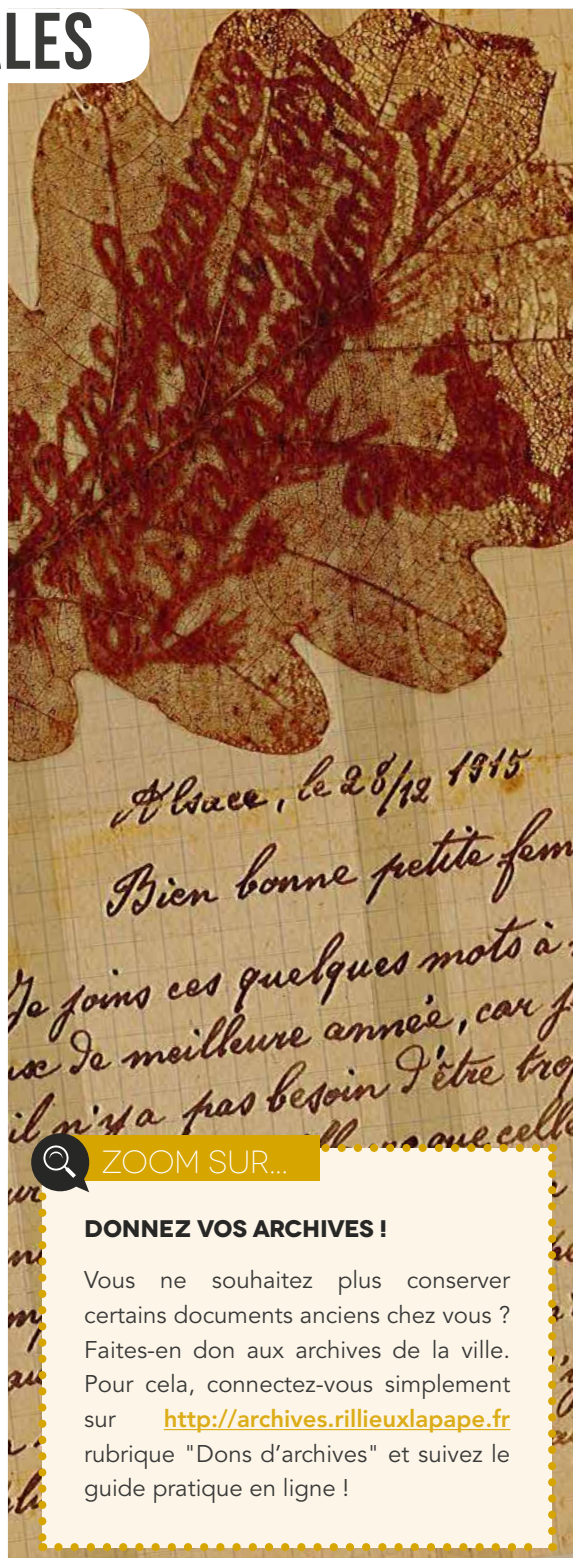 ALES
Alsace, le 28/12 1915
Bien bonne petite fem
Je joins ces quelques mots à
ux de meilleure année, car j
il n'y a pas besoin d'être trop
que celle
ZOOM SUR...
DONNEZ VOS ARCHIVES !
Vous ne souhaitez plus conserver
certains documents anciens chez vous ?
Faites-en don aux archives de la ville.
Pour cela, connectez-vous simplement
sur http://archives.rillieuxlapape.fr
rubrique "Dons d'archives" et suivez le
guide pratique en ligne !